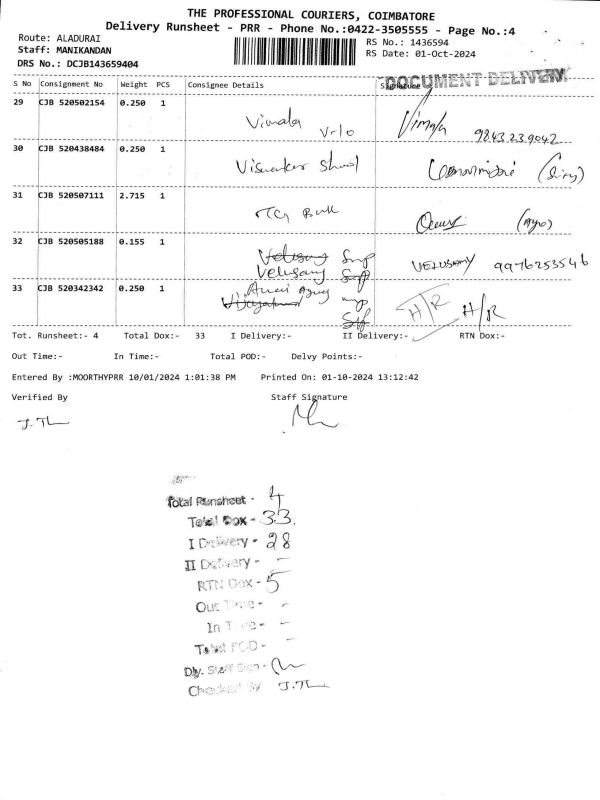 THE PROFESSIONAL COURIERS, COIMBATORE
Delivery Runsheet - PRR - Phone No.:0422-3505555 - Page No.:4
Route: ALADURAI
Staff: MANIKANDAN
DRS No.: DCJB143659404
RS No.: 1436594
RS Date: 01-Oct-2024
DOCUMENT DELIVERY
S No Consignment No Weight PCS Consignee Details Signature
29 CJB 520502154 0.250 1 Vimala V/o Vimala 9843239042
30 CJB 520438484 0.250 1
31 CJB 520507111 2.715 1
32 CJB 520505188 0.155 1 Velusamy
Velusamy VELUSAMY 9976253546
33 CJB 520342342 0.250 1 H/R H/R
Tot. Runsheet:- 4 Total Dox:- 33 I Delivery:- II Delivery:- RTN Dox:-
Out Time:- In Time:- Total POD:- Delvy Points:-
Entered By :MOORTHYPRR 10/01/2024 1:01:38 PM Printed On: 01-10-2024 13:12:42
Verified By Staff Signature
Total Runsheet - 4
Total Dox - 33.
I Delivery - 28
II Delivery - -
RTN Dox - 5
Out Time - -
In Time - -
Total POD - -
Dly. Staff Sign -
Checked By